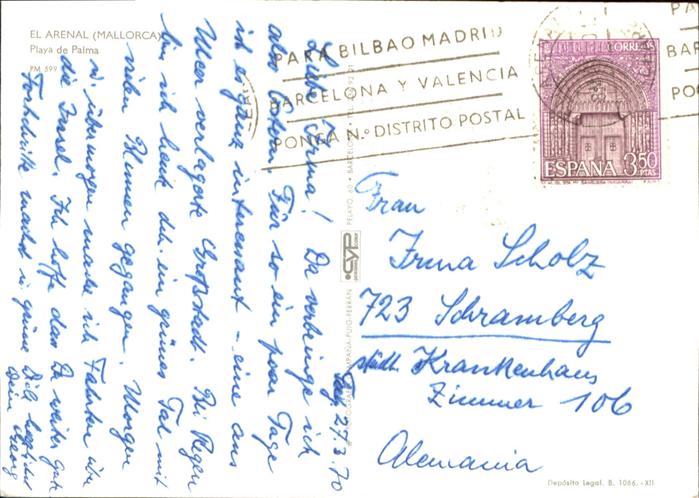 EL ARENAL (MALLORCA)
Playa de Palma
PM 599
PARA BILBAO MADRID
BARCELONA Y VALENCIA
PONGA N.º DISTRITO POSTAL
PA
BAR
PO
CORREOS
ESPAÑA 3,50
PTAS
27.3.70
Liebe Irma! Da verbringe ich
also Ostern. Für so ein paar Tage
ist es ganz interessant – eine ans
Meer verlagerte Großstadt. Bei Regen
bin ich heute durch ein grünes Tal mit
vielen Blumen gegangen. Morgen
u. übermorgen mache ich Fahrten über
die Insel. Ich hoffe, dass Du weiter gute
Fortschritte machst u. grüsse Dich herzlichst
Dein Georg
Frau
Irma Scholz
723 Schramberg
städt. Krankenhaus
Zimmer 106
Alemania
Depósito Legal. B. 1066. -XII